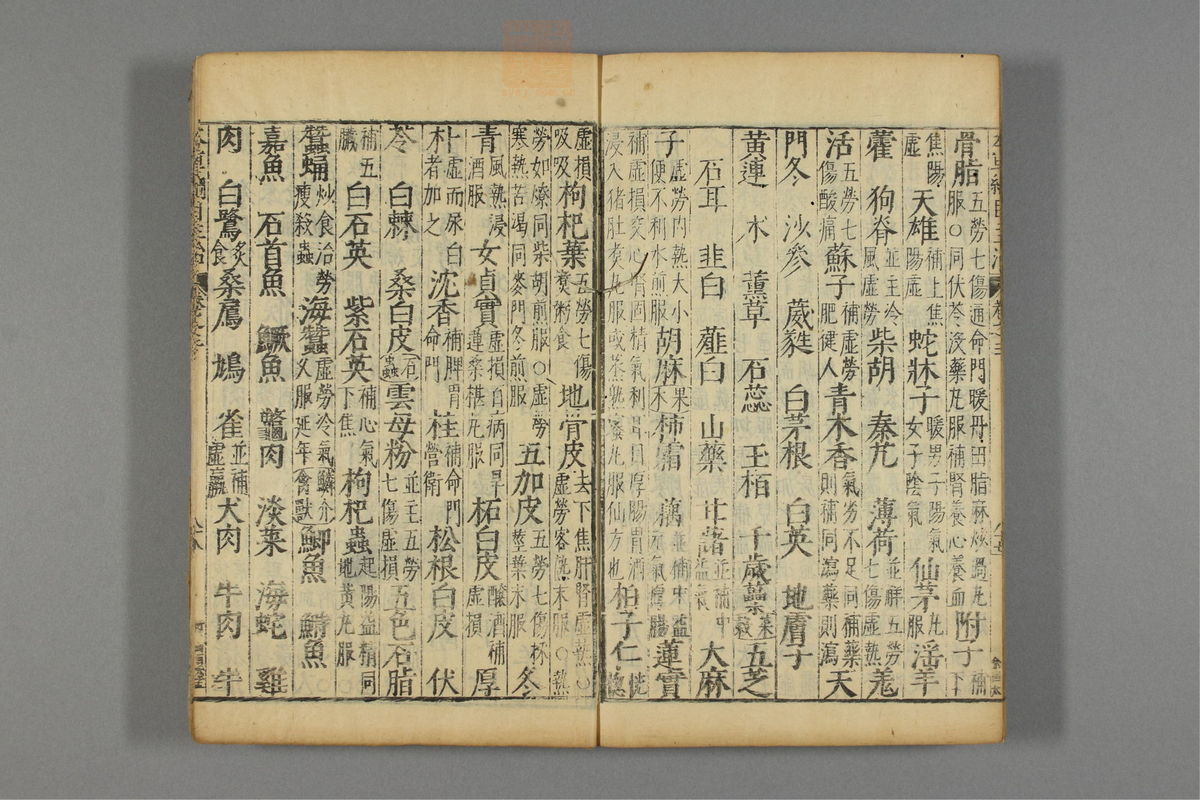 骨脂五勞七傷通命門暖丹田脂麻炒過丸服○同伏苓没藥丸服補腎養心養血附子補下
焦陽虛天雄補上焦陽虛蛇牀子暖男子陽氣女子陰氣仙茅丸服淫羊
藿狗脊並主冷風虛勞柴胡秦艽薄荷並五勞七傷虛熱羌
活五勞七傷酸痛蘇子補虛勞肥健人青木香氣劣不足同補藥則補同瀉藥則瀉天
門冬沙參葳蕤白茅根白英地膚子
黃連朮薰草石蕊玉柏千歲蘽菜穀五芝
石耳韭白薤白山藥甘藷並補中益氣大麻
子虛勞內熱大小便不利水煎服胡麻果木柿霜藕並補中益氣厚腸蓮實
補虛損交心腎固精氣利耳目厚腸胃酒浸入猪肚煮丸服或蒸熟蜜丸服仙方也柏子仁
虛損吸吸枸杞葉五勞七傷煑粥食地骨皮去下焦肝腎虛熱○虛勞客熱末服○熱
勞如燎同柴胡煎服○虛勞寒熱苦渴同麥門冬煎服五加皮五勞七傷采莖葉末服冬
青風熱浸酒服女貞實虛損百病同旱蓮桑椹丸服柘白皮釀酒補虛損厚
朴虛而尿白者加之沈香補脾胃命門桂補命門營衛松根白皮伏
苓白棘桑白皮石蟲雲母粉並主五勞七傷虛損五色石脂
補五臟白石英紫石英補心氣下焦枸杞蟲起陽益精同地黃丸服
蠶蛹炒食治勞瘦殺蟲海蠶虛勞冷氣久服延年鱗介禽獸鯽魚鰣魚
嘉魚石首魚鱖魚鼈肉淡菜海蛇雞
肉白鷺炙食桑鳸鳩雀並補虛羸犬肉牛肉牛